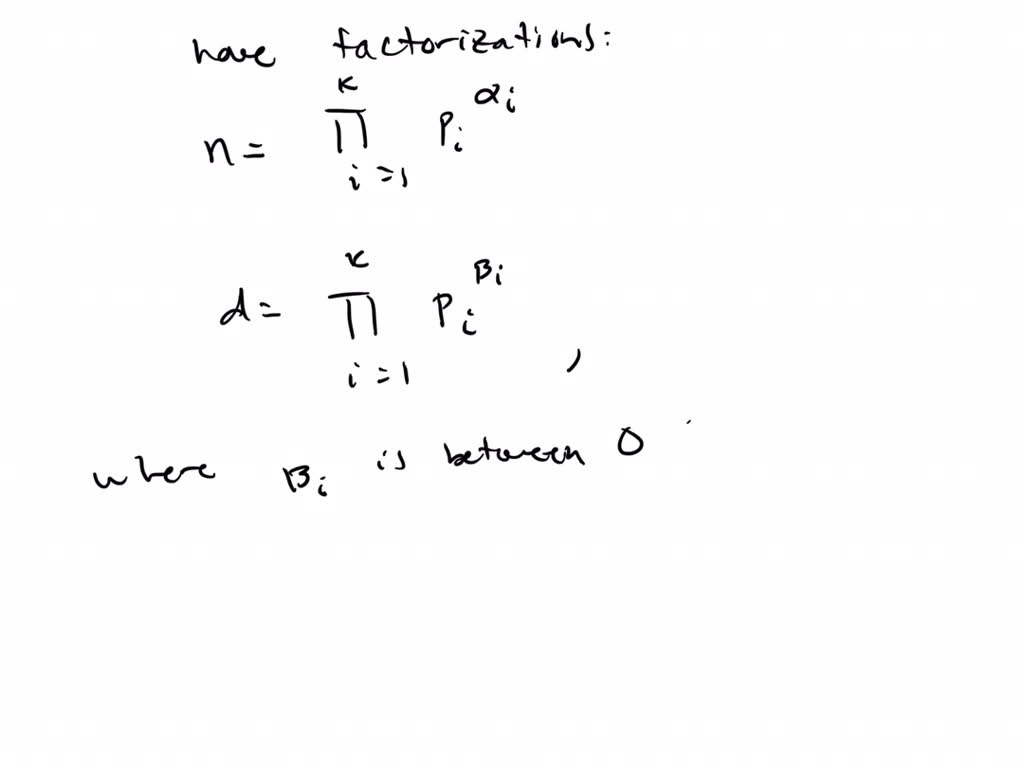 have factorizations:
n = ∏_{i=1}^{k} p_i^{α_i}
d = ∏_{i=1}^{k} p_i^{β_i} ,
where β_i is between 0